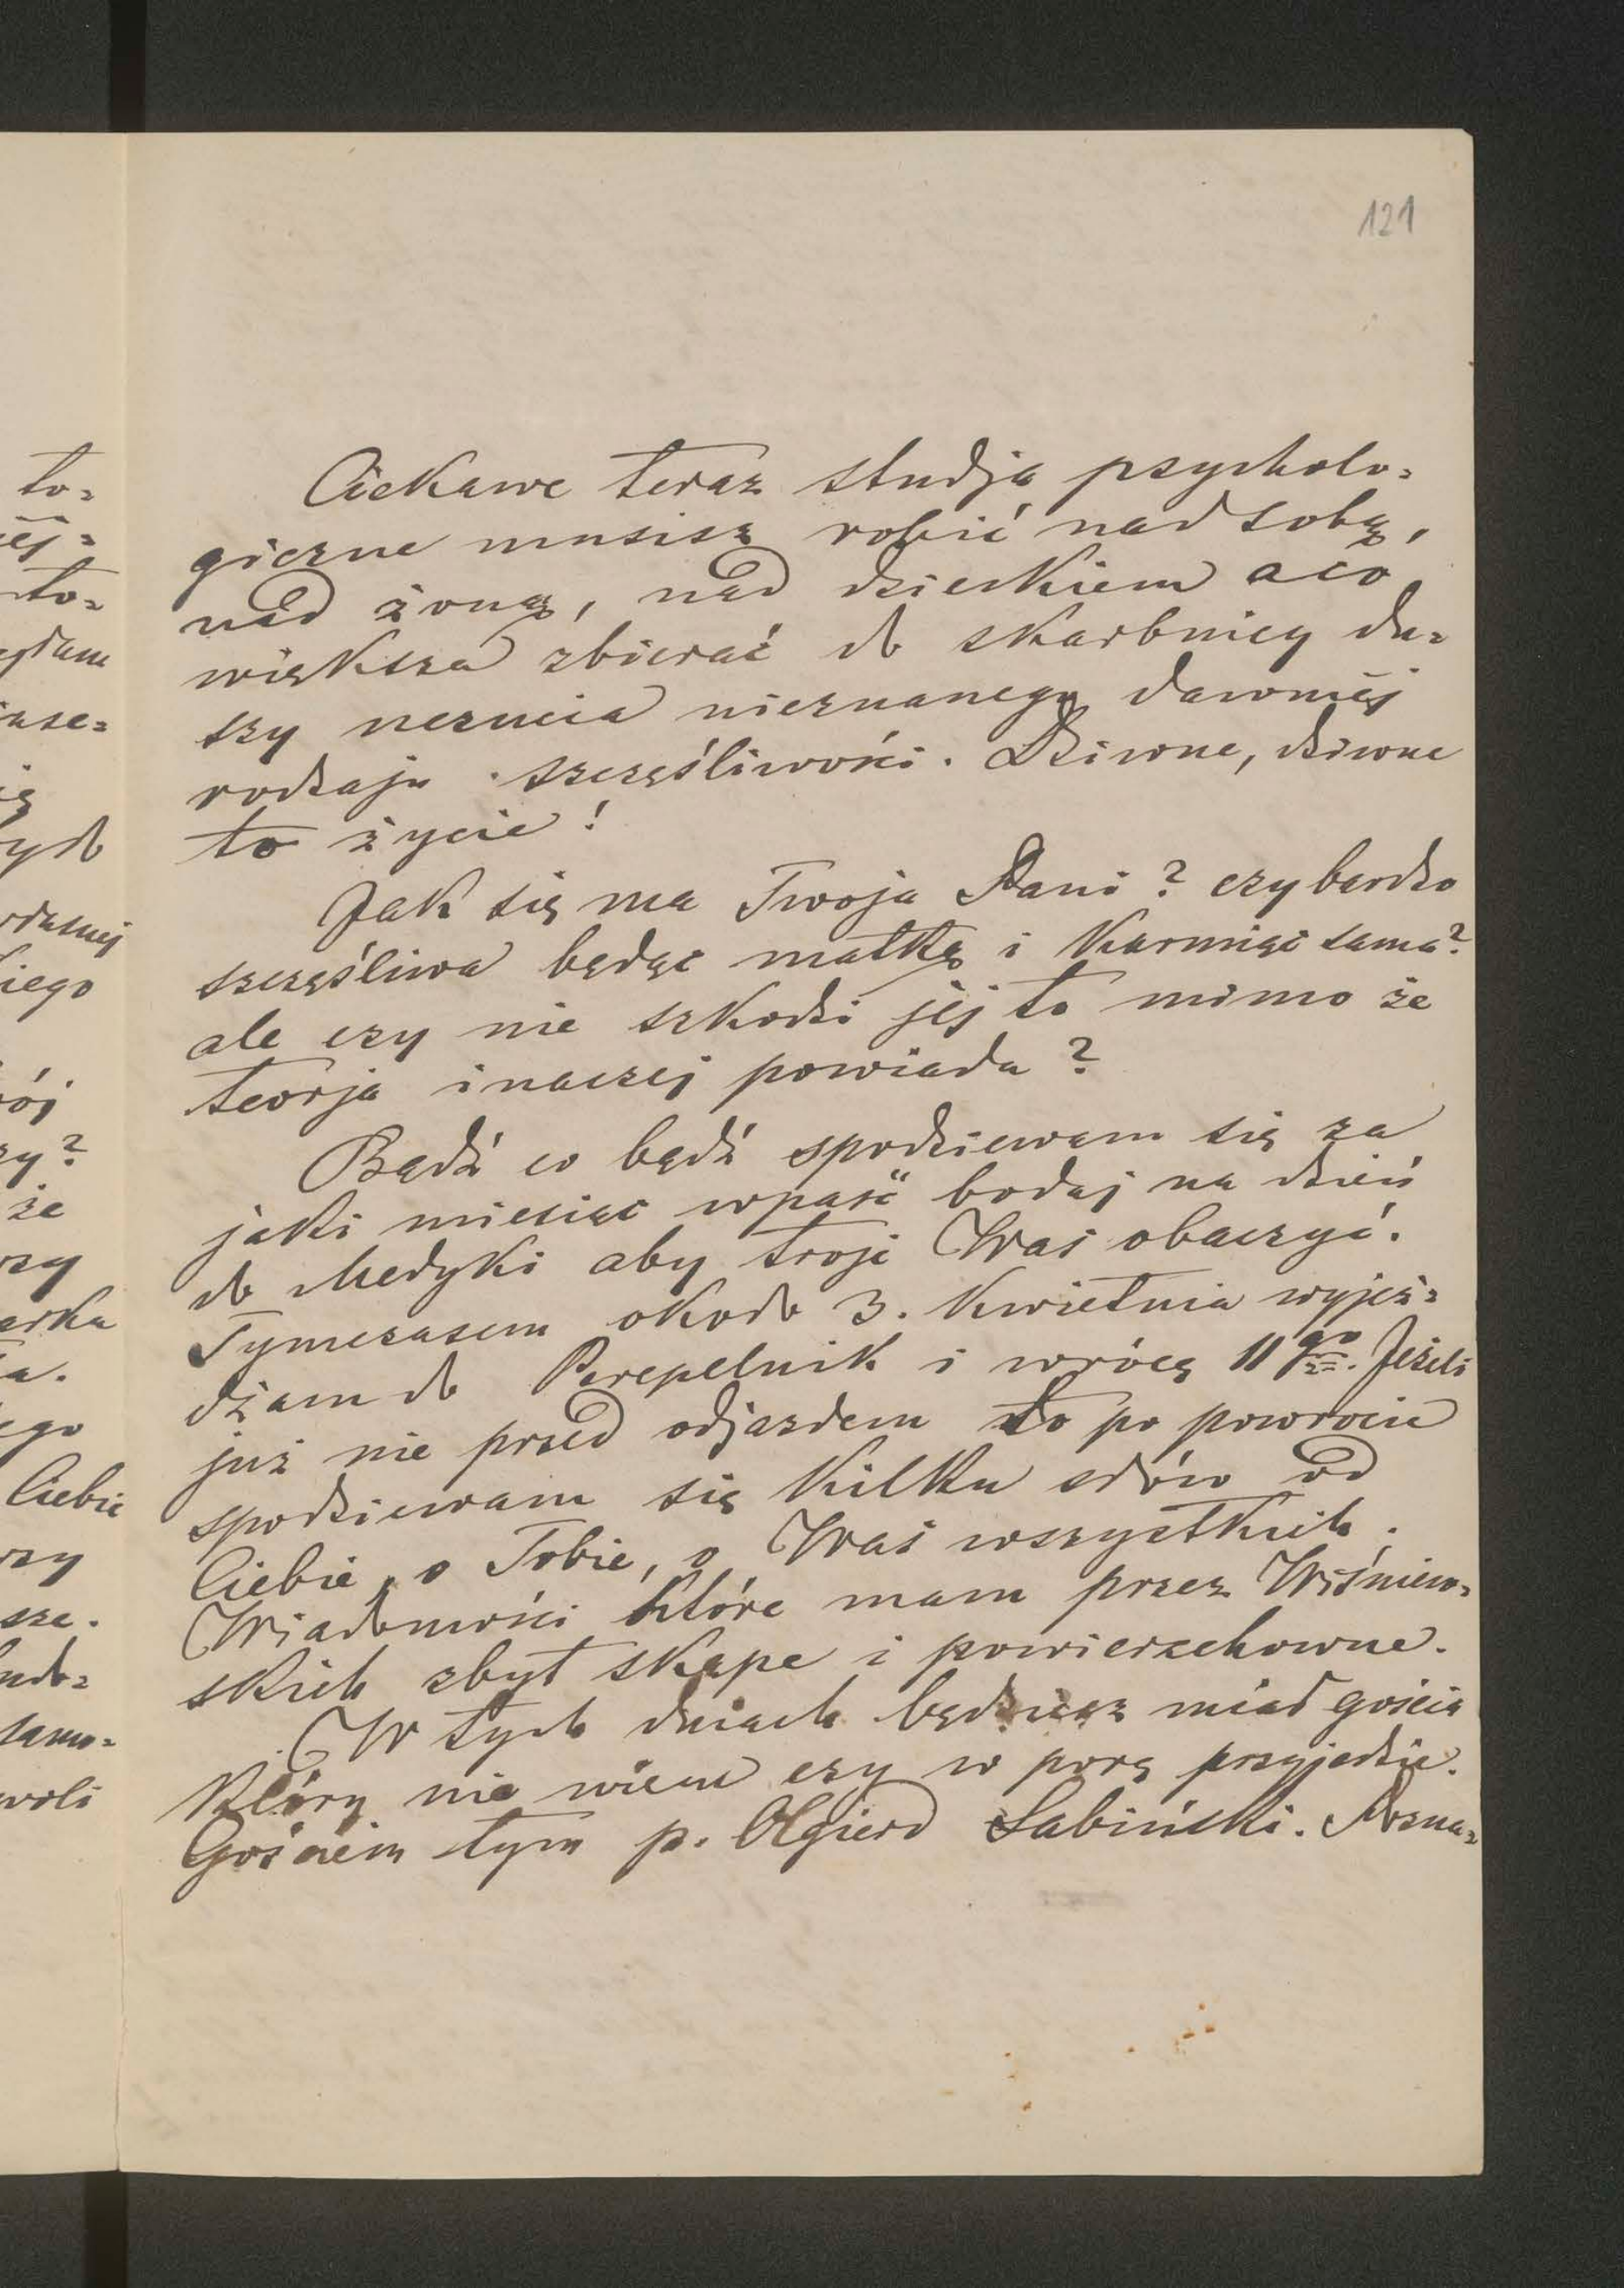 121
Ciekawe teraz studja psycholo=
giczne musisz robić nad sobą,
nad żoną, nad dzieckiem a co
większa zbierać do skarbnicy du=
szy uczucia nieznanego dawniéj
rodzaju szczęśliwości. Dziwne, dziwne
to życie!
Jak się ma Twoja Pani? czy bardzo
szczęśliwa będąc matką i karmiąc sama?
ale czy nie szkodzi jéj to mimo że
teorja inaczej powiada?
Bądź co bądź spodziewam się za
jaki miesiąc wpaść bodaj na dzień
do Medyki aby troje Was obaczyć.
Tymczasem około 3. Kwietnia wyjeż=
dżam do Perepelnik i wrócę 11go. Jeżeli
już nie przed odjazdem to po powrocie
spodziewam się kilku słów od
Ciebie, o Tobie, o Was wszystkich.
Wiadomości które mam przez Wiśniew=
skich zbyt skąpe i powierzchowne.
W tych dniach będziesz miał gościa
który nie wiem czy w porę przyjedzie.
Gościem tym p. Olgierd Łabiński. Pozna=
to=
iéj=
to=
ię
iego
ój
zy?
że
rzy
erka
ego
Ciebie
rzy
sze.
samo=
woli